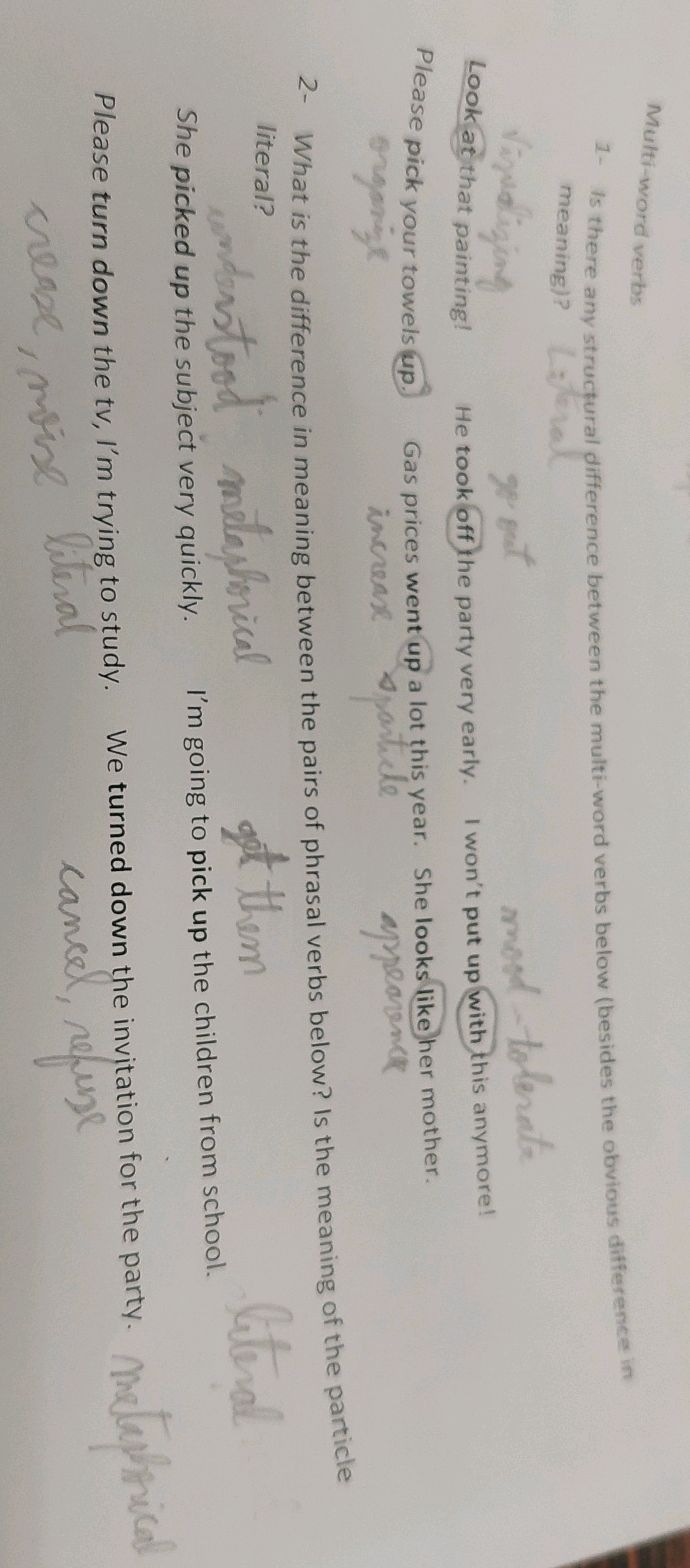 Multi-word verbs
1- Is there any structural difference between the multi-word verbs below (besides the obvious difference in
meaning)? Literal
Visualizing go out mood - tolerate
Look at that painting! He took off the party very early. I won't put up with this anymore!
Please pick your towels up. Gas prices went up a lot this year. She looks like her mother.
organize increase particle appearence
2- What is the difference in meaning between the pairs of phrasal verbs below? Is the meaning of the particle
literal?
understood metaphorical get them literal
She picked up the subject very quickly. I'm going to pick up the children from school.
Please turn down the tv, I'm trying to study. We turned down the invitation for the party. metaphorical
crease, noise literal cancel, refuse